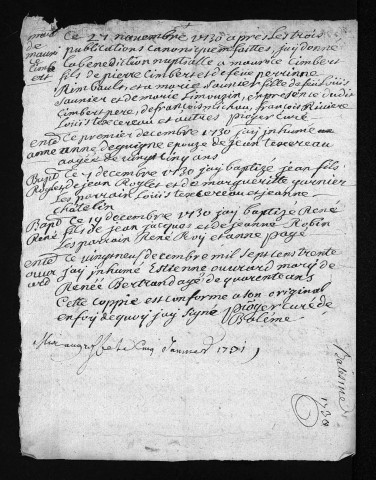 mari Ce 27 novembre 1730 apres les trois
de publications canoniquem faittes, j'ay donné
mauri labenediction nuptialle a maurice Cimbert
Cimb fils de pierre Cimbert et de feue perrinne
ert Rimbault et marie Saunier fille de feu Louis
Saunier et de marie Limousin, en presence dudit
Cimbert pere, de françois michau, françois Riviere
Louis texereau et autres proyer Curé
ente Ce premier decembre 1730 jay inhumé
anne anne dequigne epouze de jean texereau
aagée de vingt cinq ans
Bapt Ce 7 decembre 1730 jay baptizé jean fils
Roy de jean Roy et de marguerite garnier
les parrain Louis texereau et jeanne
Chatelin
Bapt Ce 19 decembre 1730 jay baptizé René
René fils de jean jacques et de jeanne Robin
les parrain René Roy et anne page
ente Ce vingtneuf decembre mil sept cens trente
ouvr jay inhumé Estienne ouvrard mary de
ard Renée Bertrand agé de quarente ans
Cette coppie est conforme a son original
en foy de quoy jay signé proyer curé de
Balesme
1731
Balesme
1730